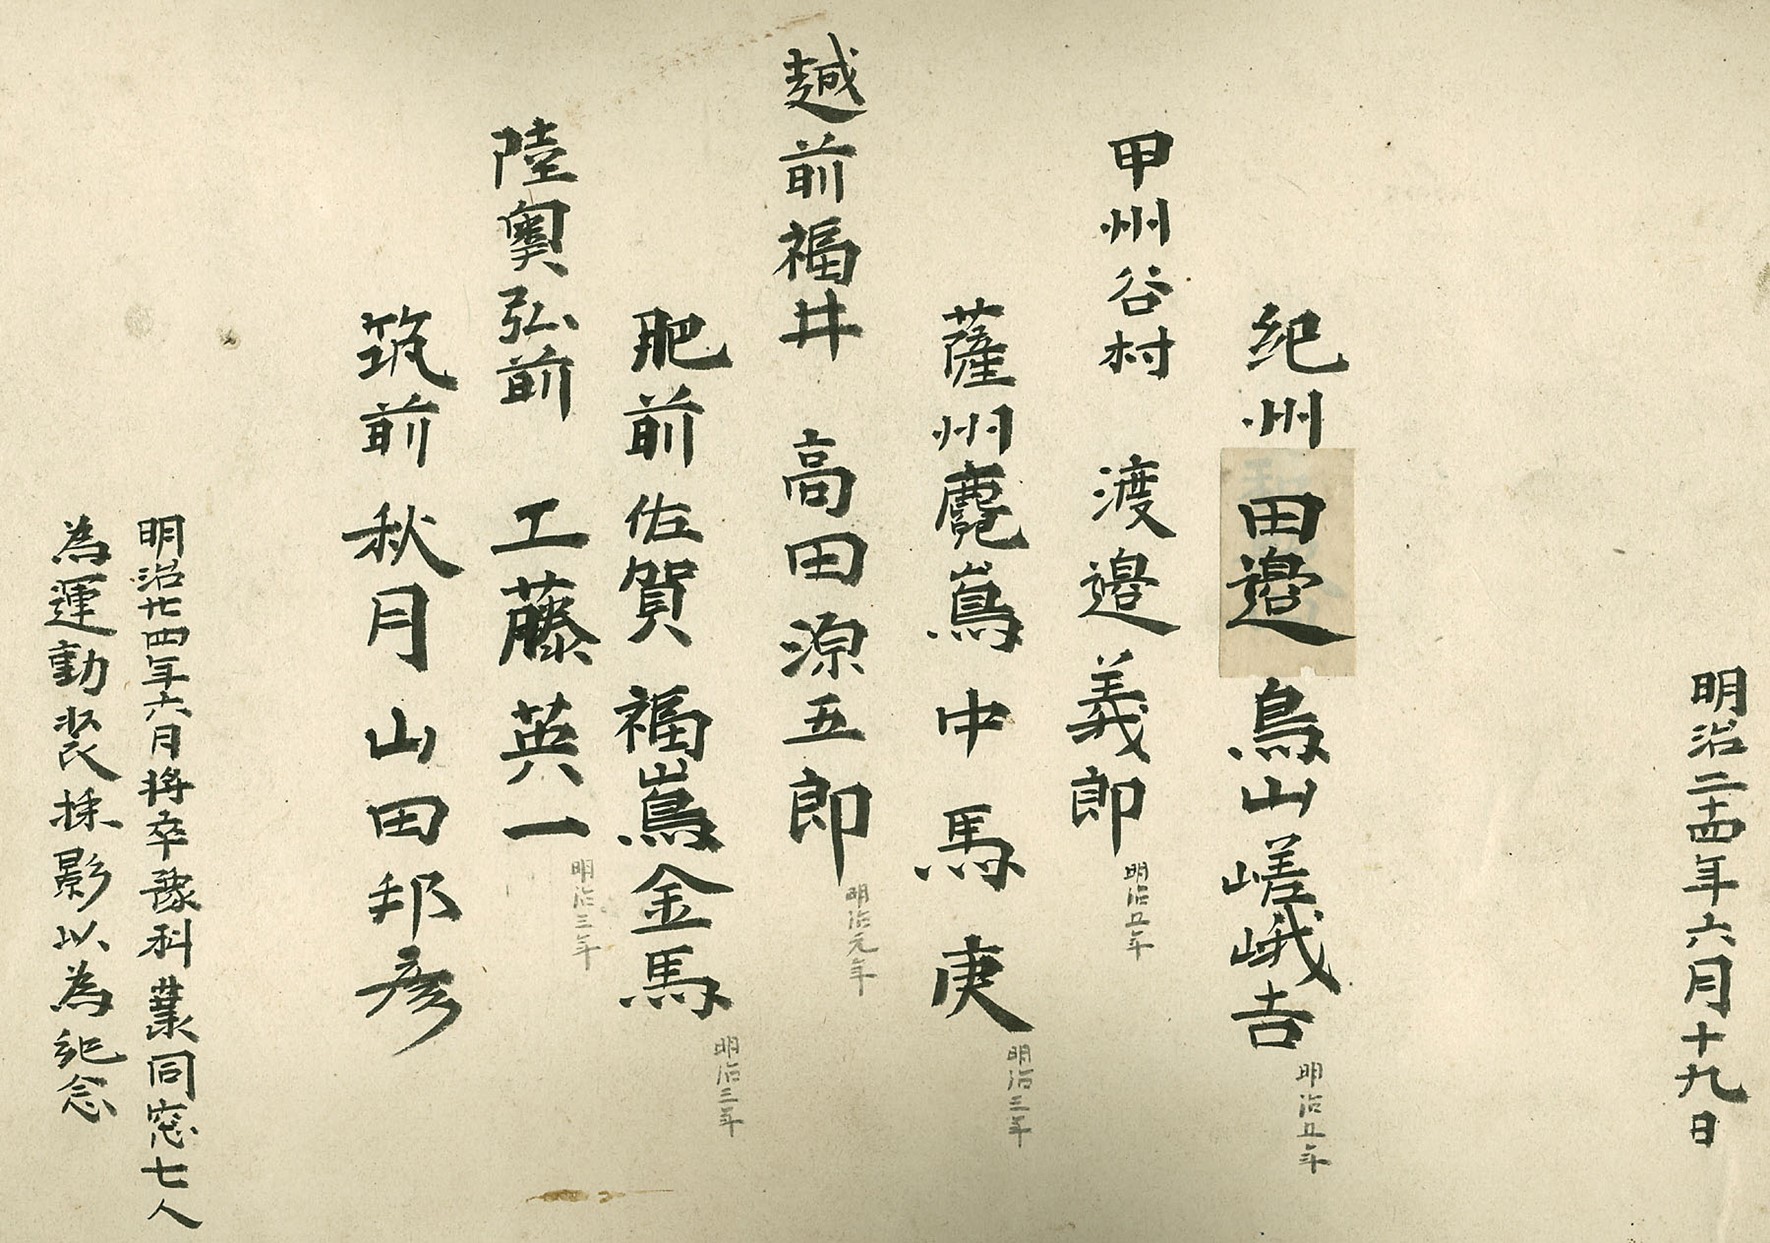 明治二十四年六月十九日
紀州田邉 鳥山嵯峨吉
明治五年
甲州谷村 渡邉義郎
明治五年
薩州麑嶌 中馬庚
明治三年
越前福井 高田源五郎
明治元年
肥前佐賀 福嶌金馬
明治三年
陸奥弘前 工藤英一
明治三年
筑前秋月 山田邦彦
明治廿四年六月将卒豫科業同窓七人
為運動装採影以為紀念